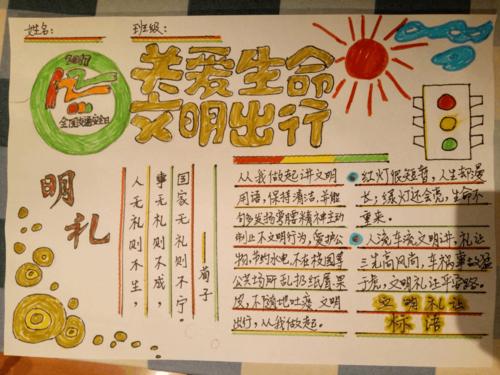 姓名：
班级：
关爱生命
文明出行
122
全国交通安全日
明礼
人无礼则不生，
事无礼则不成，
国家无礼则不宁。
——荀子
从我做起讲文明
用语，保持清洁，并能
动制止不文明行为，爱护公
物，节约水电，不在校园等
公共场所乱扔纸屑果
皮，不随地吐痰，文明
出行，从我做起。
红灯很短暂，人生却漫
长；绿灯还会亮，生命不
重来。
人流车流文明讲，礼让
三先高风尚，车祸事故猛
于虎，文明礼让平安路。
文明礼让
标语